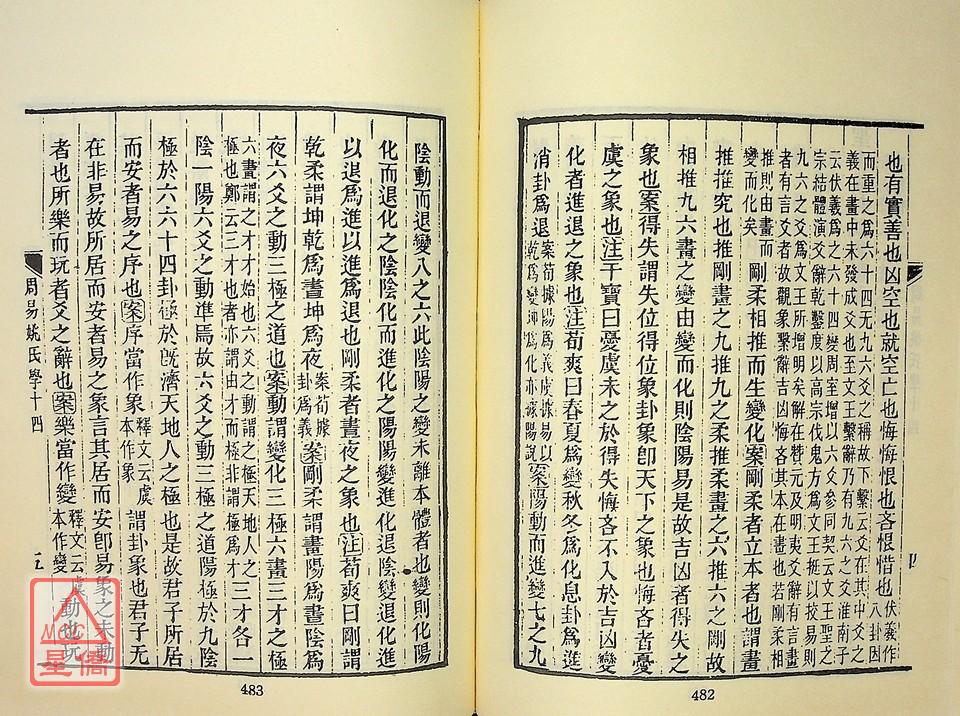 也有實善也凶空也就空亡也悔悔恨也吝恨惜也伏羲作八卦因
而重之為六十四无九六爻之稱故下繫云爻在其中爻之
義在畫中未發成爻也至文王繫辭乃有九六之爻淮南子
云伏羲為之六十四變周室增以六爻參同契云文王聖之
宗結體演爻辭乾鑿度以高宗伐鬼方為文王挺以挍易
九六之爻為文王所增明矣解在蠱元及明夷爻辭言有畫
者有言爻者故觀象繫辭吉凶悔吝其本在畫也若剛柔相
推則由畫而
變而化矣 剛柔相推而生變化案剛柔者立本者也謂畫
推推究也推剛畫之九推九之柔推柔畫之六推六之剛故
相推九六畫之變由變而化則陰陽易是故吉凶者得失之
象也案得失謂失位得位象卦象卽天下之象也悔吝者憂
虞之象也注干寶曰憂虞未之於得失悔吝不入於吉凶變
化者進退之象也注荀爽曰春夏為變秋冬為化息卦為進
消卦為退案荀據陽為義虞據易以乾為變坤為化亦據陽說案陽動而進變七之九
482
陰動而退變八之六此陰陽之變未離本體者也變則化陽
化而退化之陰陰化而進化之陽陽變進化退陰變退化進
以退為進以進為退也剛柔者晝夜之象也注荀爽曰剛謂
乾柔謂坤乾為晝坤為夜案荀據卦為義案剛柔謂畫陽為晝陰為
夜六爻之動三極之道也案動謂變化三極六畫三才之極
六畫謂之才才始也六爻之動謂之極天地人之三才各一
極也鄭云三才也者亦謂由才而極非謂極為才
陰一陽六爻之動準焉故六爻之動三極之道陽極於九陰
極於六六十四卦極於旣濟天地人之極也是故君子所居
而安者易之序也案序當作象釋文云虞本作象謂卦象也君子无
在非易故所居而安者易之象言其居而安卽易象之未動
者也所樂而玩者爻之辭也案樂當作變釋文云虞本作變動也玩
周易姚氏學十四
483
MCC
星僑